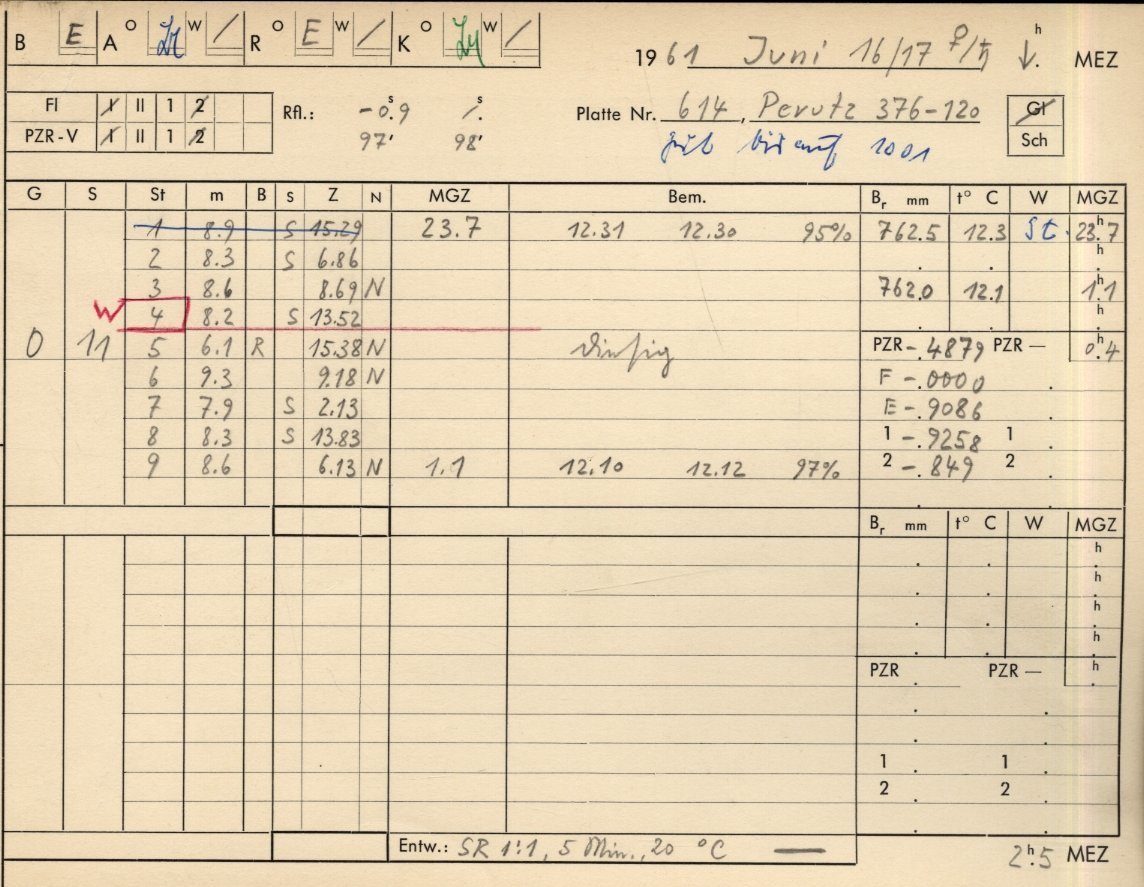 B E A O W / R O E W / K O W /
1961 Juni 16/17 ♀/♄ h MEZ
Fl I II 1 2
PZR-V I II 1 2
Rfl.: -0.9 s /. s
97' 98'
Platte Nr. 614, Perutz 376-120
bis auf 1001
Gl
Sch
G S St m B S Z N MGZ Bem. Br mm t° C W MGZ
1 8.9 S 15.29 23.7 12.31 12.30 95% 762.5 12.3 St. 23.7 h
2 8.3 S 6.86 h
3 8.6 8.69 N 762.0 12.1 1.1 h
W 4 8.2 S 13.52 h
0 11 5 6.1 R 15.38 N diesig PZR -.4879 PZR — 0.4 h
6 9.3 9.18 N F -.0000
7 7.9 S 2.13 E -.9086
8 8.3 S 13.83 1 -.9258 1
9 8.6 6.13 N 1.1 12.10 12.12 97% 2 -.849 2
Br mm t° C W MGZ
h
h
h
h
PZR PZR — h
1 1
2 2
Entw.: SR 1:1, 5 Min., 20 °C —
2h.5 MEZ